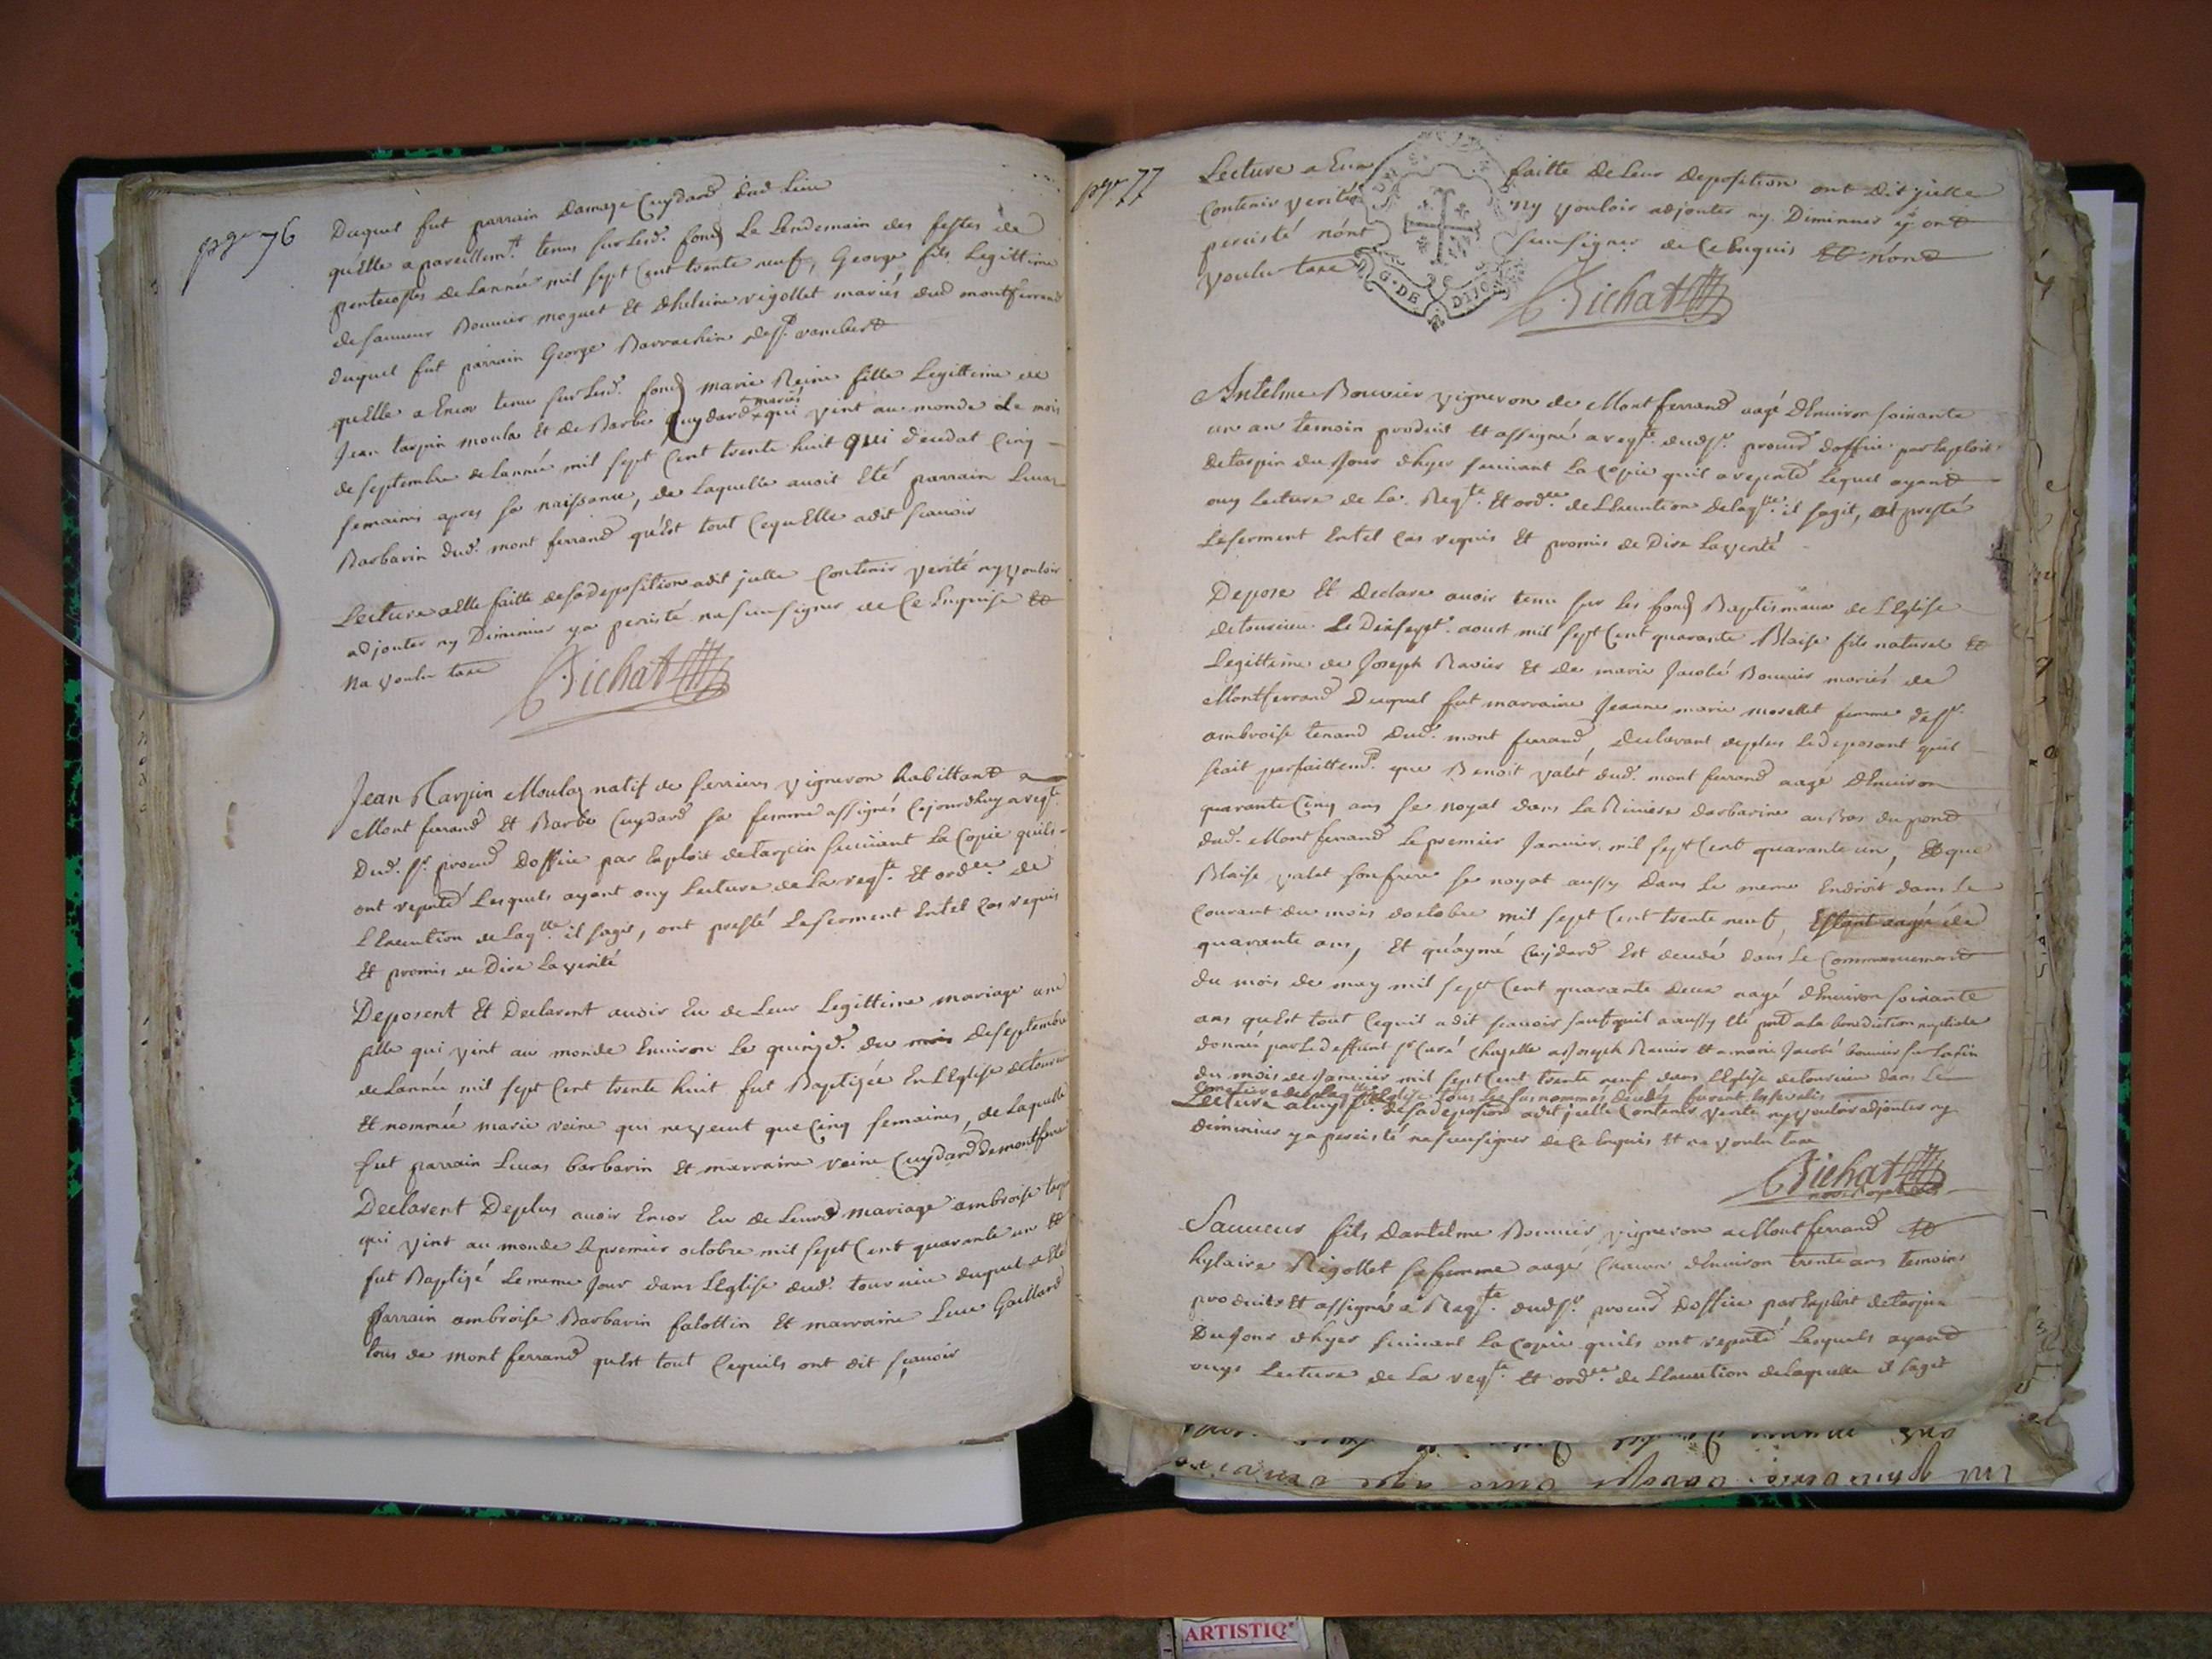 page 76
Duquel fut parrain Damaze Cuydard dud. Lieu
qu'Elle a pareillemt. tenu sur lesd. fonds Le Lendemain des festes de
pentecostes de Lannée mil sept Cent trente neuf, George fils Legittime
de sauveur Bouvier moguet Et dhelaine rigollet mariés dud montferrand
duquel fut parrain George Barrachin
quElle a Encor tenu sur Lesd. fonds marie Reine fille Legittime de
Jean tarpin moula Et de Barbe Cuydard mariés qui vint au monde Le mois
de septembre de Lannée mil sept Cent trente huit qui deceda Cinq
semaines apres sa naissance, de Laquelle avoit Eté parrain Lucas
Barbarin dud. mont ferrand qu'Est tout CequElle a dit scavoir
Lecture a Elle faitte de sa deposition a dit jcelle Contenir verité ny vouloir
adjouter ny Diminuer y a percisté na sceu signer de Ce Enquise Et
na voulu taxe
Bichat
Jean Tarpin Moulaz natif de ferrieres vigneron habittant a
Mont ferrand Et Barbe Cuydard sa femme assignés Cejourdhuy a reqte.
Dud. sr. procur Doffice par Exploit de tarpin suivant La Copie quils
ont reporté Lesquels ayant ouy Lecture de La reqte. Et ordce. de
LExecution de Laqlle. il sagit, ont presté Le serment En tel Cas requis
Et promis de Dire La verité
Deposent Et Declarent avoir Eu de Leur Legittime mariage une
fille qui vint au monde Environ Le quinze. du mois de septembre
de Lannée mil sept Cent trente huit fut Baptizée En LEglise de touvieu
Et nommée marie reine qui ne vecut que Cinq semaines, de Laquelle
fut parrain Lucas barbarin Et marraine reine Cuydard de montferrand
Declarent Deplus avoir Encor Eu de Leurd mariage ambroise tarpin
qui vint au monde Le premier octobre mil sept Cent quarante un Et
fut Baptizé Le meme Jour dans LEglise dud. touvieu duquel a Eté
parrain ambroise Barbarin falottin Et marraine Luce Gaillard
tous de mont ferrand qu'Est tout Cequils ont dit sçavoir
page 77
Lecture a Eux faitte de Leur deposition ont Dit jcelle
Contenir verité ny vouloir adjouter ny Diminuer y ont
percisté n'ont sceu signer de Ce Enquis Et n'ont
voulu taxe
G. DE DIJON
Bichat
Antelme Bouvier vigneron de Mont ferrand aagé dEnviron soixante
un an temoin produit Et assigné a reqte. dud sr. procur doffice par Exploit
de tarpin du Jour dhyer suivant La Copie quil a reporté Lequel ayant
ouy Lecture de La Reqte. Et ordce. de LExecution de laqlle. il sagit, at presté
Le serment En tel Cas requis Et promis de Dire La verité
Depose Et Declare avoir tenu sur les fonds Baptismaux de LEglise
de touvieu Le Dix sept. aoust mil sept Cent quarante Blaise fils naturel Et
Legittime de Joseph Ravier Et de marie Jacobé Bouvier mariés de
Montferrand Duquel fut marraine Jeanne marie morellet femme
ambroise tenand dud. mont ferrand, declarant deplus Le deposant quil
scait parfaittemt. que Benoit valet dud. mont ferrand aagé dEnviron
quarante Cinq ans se noyat dans La Riviere darbarine au bas du pond
dud. Mont ferrand Le premier Janvier mil sept Cent quarante un, Et que
Blaise valet son frere se noyat aussy dans Le meme Endroit dans Le
Courant du mois doctobre mil sept Cent trente neuf, Estant aagé de
quarante ans, Et qu'aymé Cuydard Est decedé dans Le Commencement
du mois de may mil sept Cent quarante deux aagé dEnviron soixante
ans quEst tout Cequil a dit scavoir sauf quil a aussy Eté pnt a la benediction nuptiale
donnée par Le deffunt sr Curé Chapelle a Joseph Ravier Et a marie Jacobé bouvier sur la fin
du mois de Janvier mil sept Cent trente neuf dans LEglise de touvieu dans Le
Cimetiere de laqlle Eglise tous Les susnommés decedés furent Ensevelis
Lecture a luy fte. de sa deposition a dit jcelle Contenir verité ny vouloir adjouter ny
diminuer y a percisté na sceu signer de Ce Enquis Et na voulu taxe
Bichat
Sauveur fils dantelme Bouvier vigneron a Mont ferrand Et
hylaire Rigollet sa femme aagés Chacun dEnviron trente ans temoins
produits Et assignés a Reqte. dud sr. procur Doffice par Exploit de tarpin
Du Jour dhyer suivant La Copie quils ont reporté Lesquels ayant
ouys Lecture de La reqte. Et ordce. de LExecution de laquelle il sagit
ARTISTIQ'